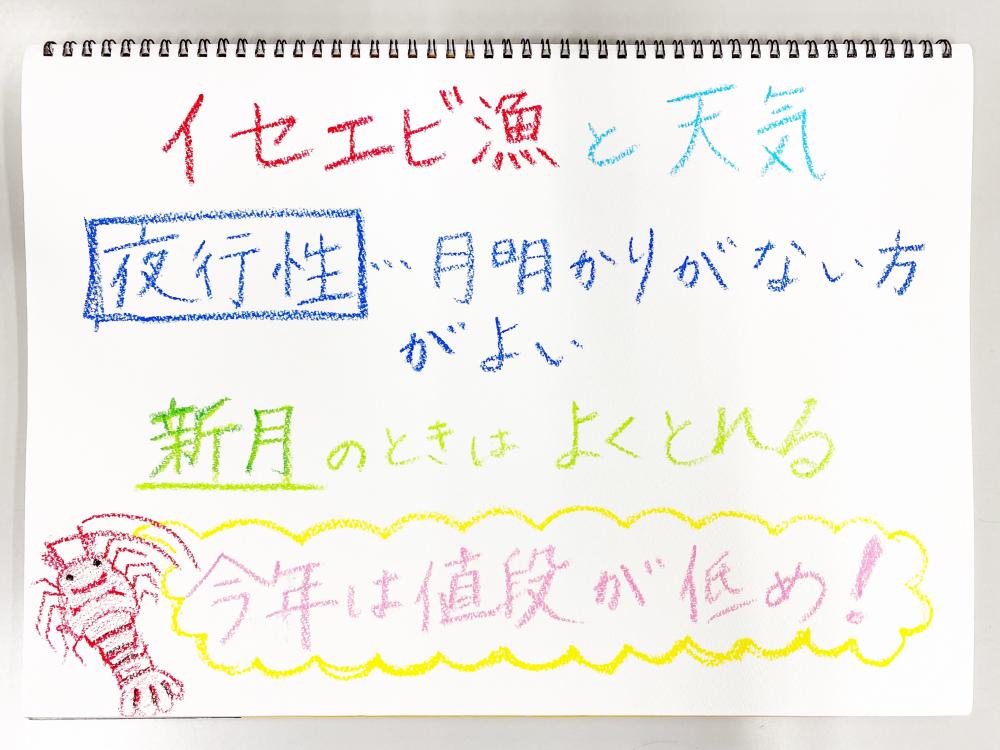 イセエビ漁と天気
夜行性…月明かりがない方
がよい
新月のときはよくとれる
今年は値段が低め!